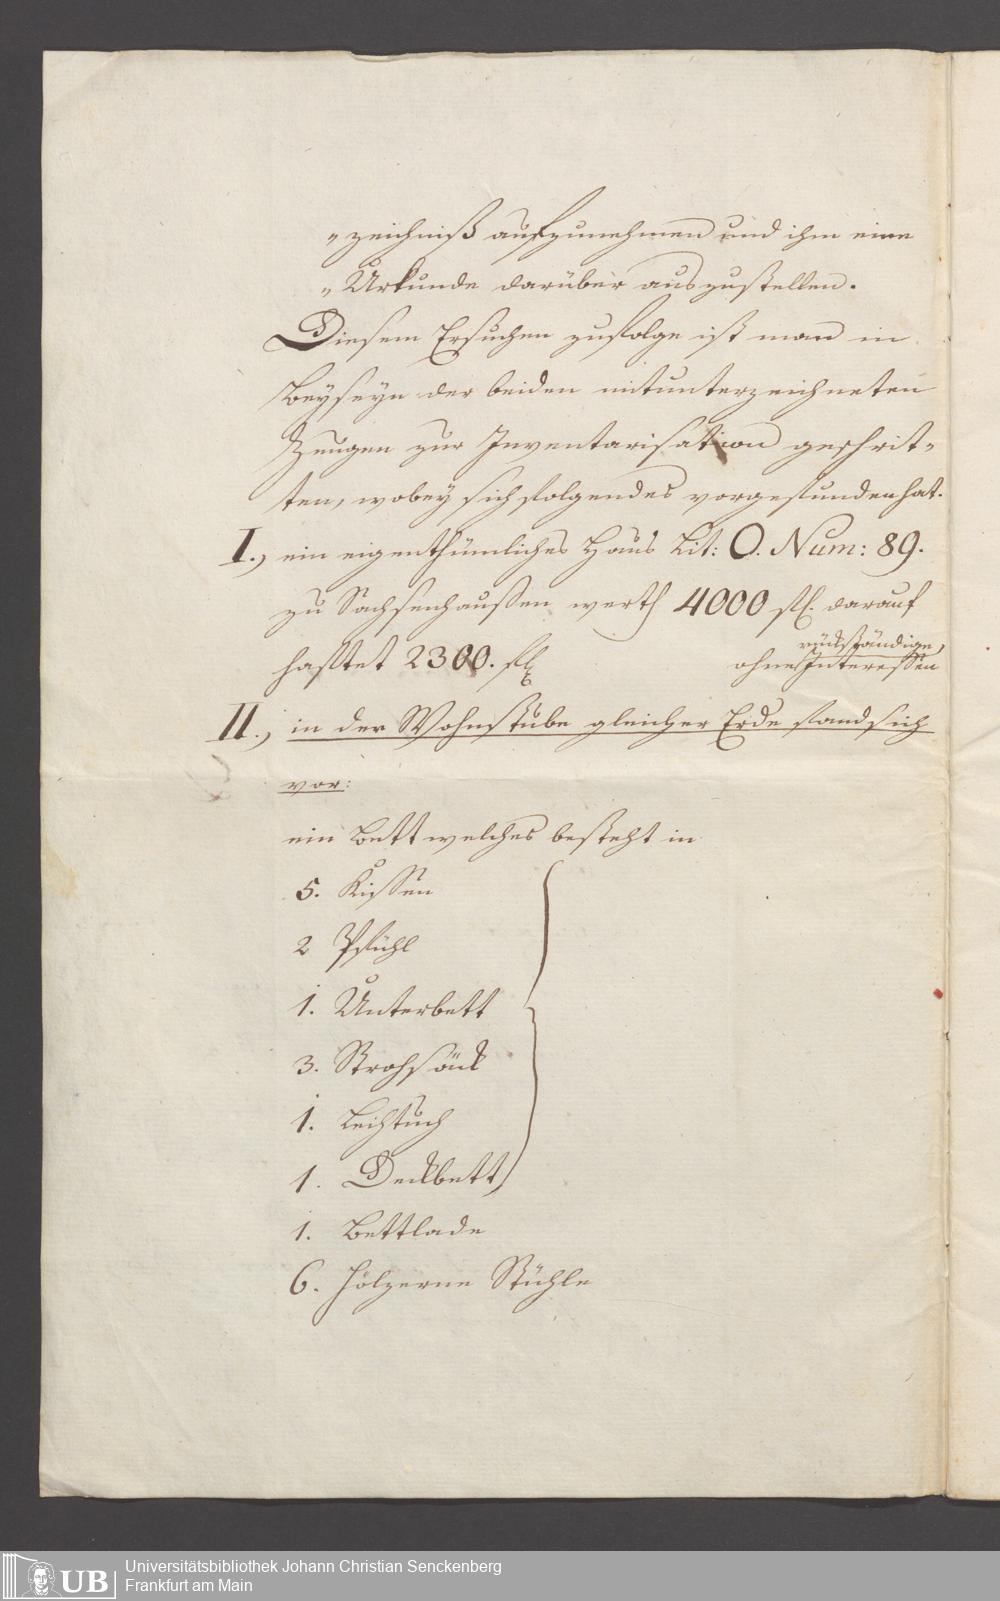 „zeichniß aufzunehmen und ihm eine
„Urkunde darüber auszustellen.
Diesem Ersuchen zufolge ist man in
Beyseyn der beiden mitunterzeichneten
Zeugen zur Inventarisation geschrit-
ten, wobey sich folgendes vorgefunden hat.
I., ein eigenthümliches Haus Lit: O. Num: 89.
zu Sachsenhaußen werth 4000 fl. darauf
rückständige,
haftet 2300. fl ohne Interessen
II., in der Wohnstube gleicher Erde fand sich
vor:
ein Bett welches besteht in
5. Kissen
2 Pfühl
1. Unterbett
3. Strohsäck
1. Leihtuch
1. Deckbett
1. Bettlade
6. hölzerne Stühle
UB
Universitätsbibliothek Johann Christian Senckenberg
Frankfurt am Main